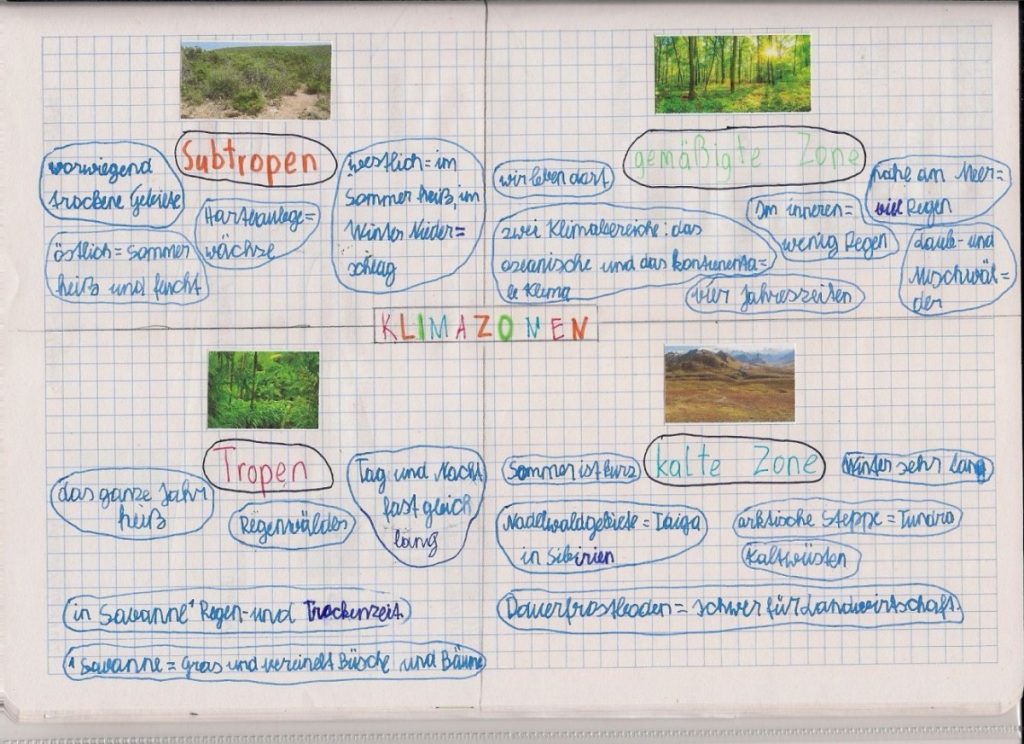 Subtropen
vorwiegend
trockene Gebiete
Hartlaubge=
wächse
westlich = im
Sommer heiß, im
Winter Nieder=
schlag
östlich = Sommer
heiß und feucht
gemäßigte Zone
wir leben dort
zwei Klimabereiche: das
ozeanische und das kontinenta=
le Klima
Im inneren =
wenig Regen
nahe am Meer =
viel Regen
Laub- und
Mischwäl=
der
vier Jahreszeiten
KLIMAZONEN
Tropen
das ganze Jahr
heiß
Regenwälder
Tag und Nacht
fast gleich
lang
in Savanne¹ Regen- und Trockenzeit.
¹ Savanne = Gras und vereinzelt Büsche und Bäume
kalte Zone
Sommer ist kurz
Winter sehr lang
Nadelwaldgebiete = Taiga
in Sibirien
arktische Steppe = Tundra
Kaltwüsten
Dauerfrostboden = schwer für Landwirtschaft.